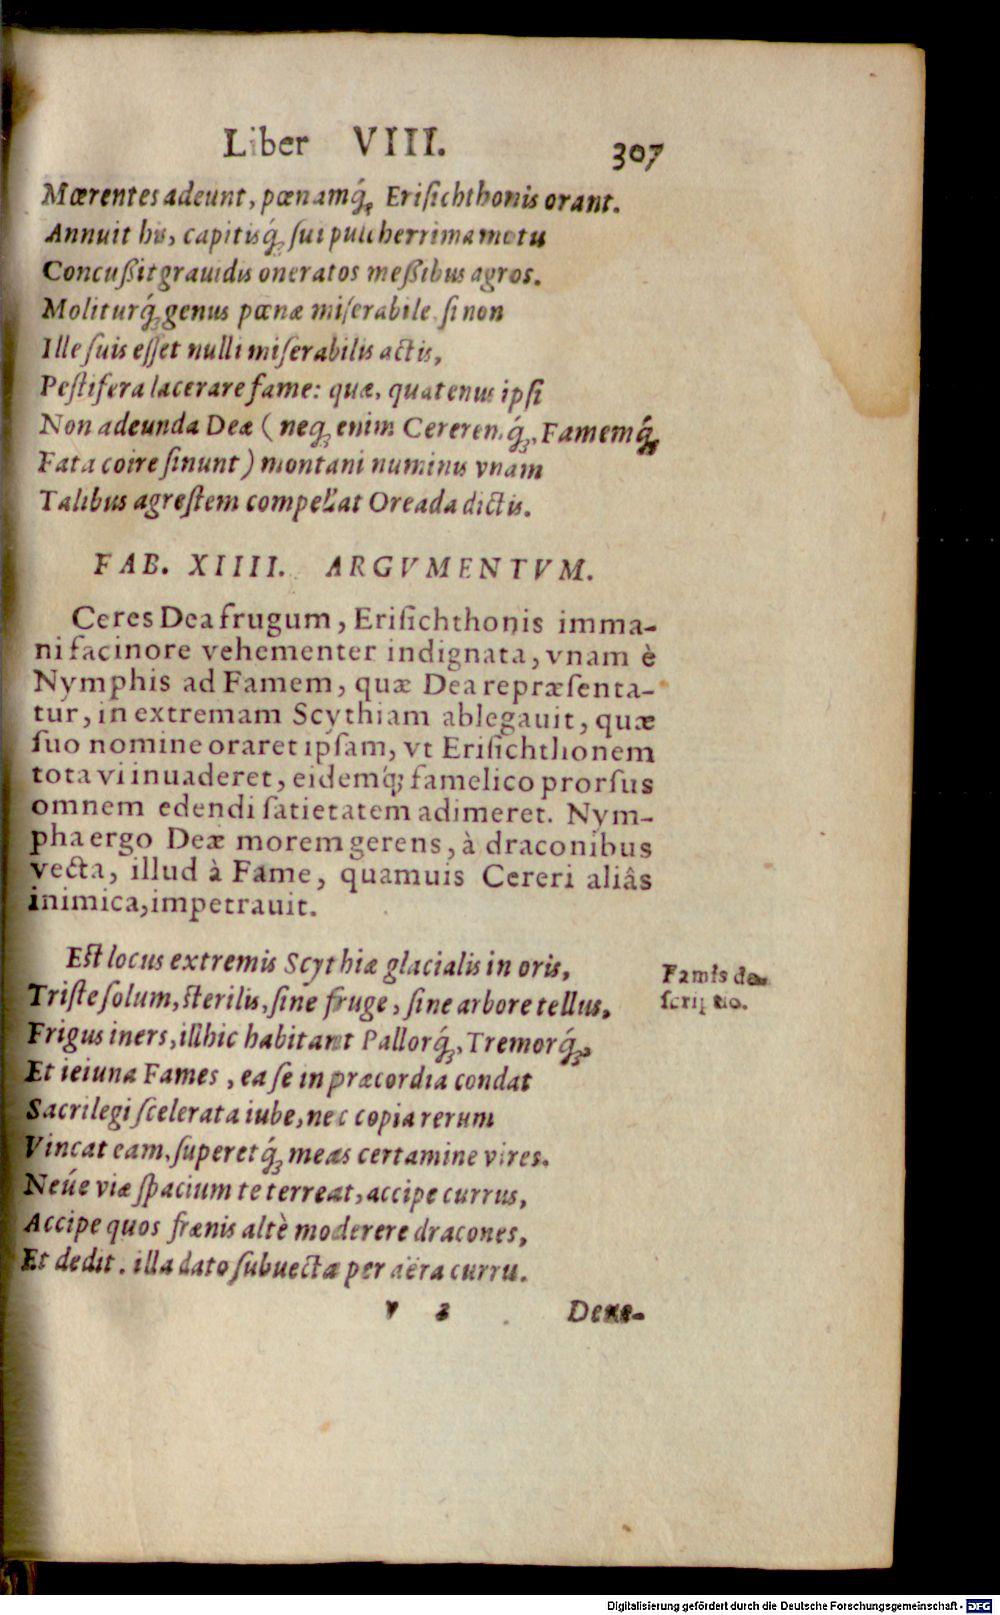 Liber VIII. 307
Mœrentes adeunt, pœnamq́; Eriſichthonis orant.
Annuit his, capitisq́; ſui pulcherrima motu
Concuſsit grauidis oneratos meſsibus agros.
Moliturq́; genus pœnæ miſerabile, ſi non
Ille ſuis eſſet nulli miſerabilis actis,
Peſtifera lacerare fame: quæ, quatenus ipſi
Non adeunda Deæ (neq; enim Cereremq́;, Famemq́;
Fata coire ſinunt) montani numinis vnam
Talibus agreſtem compellat Oreada dictis.
FAB. XIIII. ARGVMENTVM.
Ceres Dea frugum, Eriſichthonis imma-
ni facinore vehementer indignata, vnam è
Nymphis ad Famem, quæ Dea repræſenta-
tur, in extremam Scythiam ablegauit, quæ
ſuo nomine oraret ipſam, vt Eriſichthonem
tota vi inuaderet, eidemq́; famelico prorſus
omnem edendi ſatietatem adimeret. Nym-
pha ergo Deæ morem gerens, à draconibus
vecta, illud à Fame, quamuis Cereri aliâs
inimica, impetrauit.
Eſt locus extremis Scythiæ glacialis in oris,
Triſte ſolum, ſterilis, ſine fruge, ſine arbore tellus,
Frigus iners, illhic habitant Pallorq́;, Tremorq́;,
Et ieiuna Fames, ea ſe in præcordia condat
Sacrilegi ſcelerata iube, nec copia rerum
Vincat eam, ſuperetq́; meas certamine vires.
Neúe viæ ſpacium te terreat, accipe currus,
Accipe quos frænis altè moderere dracones,
Et dedit. illa dato ſubuecta per aëra curru.
Famis de-
ſcriptio.
v 2 Deue-
Digitalisierung gefördert durch die Deutsche Forschungsgemeinschaft - DFG